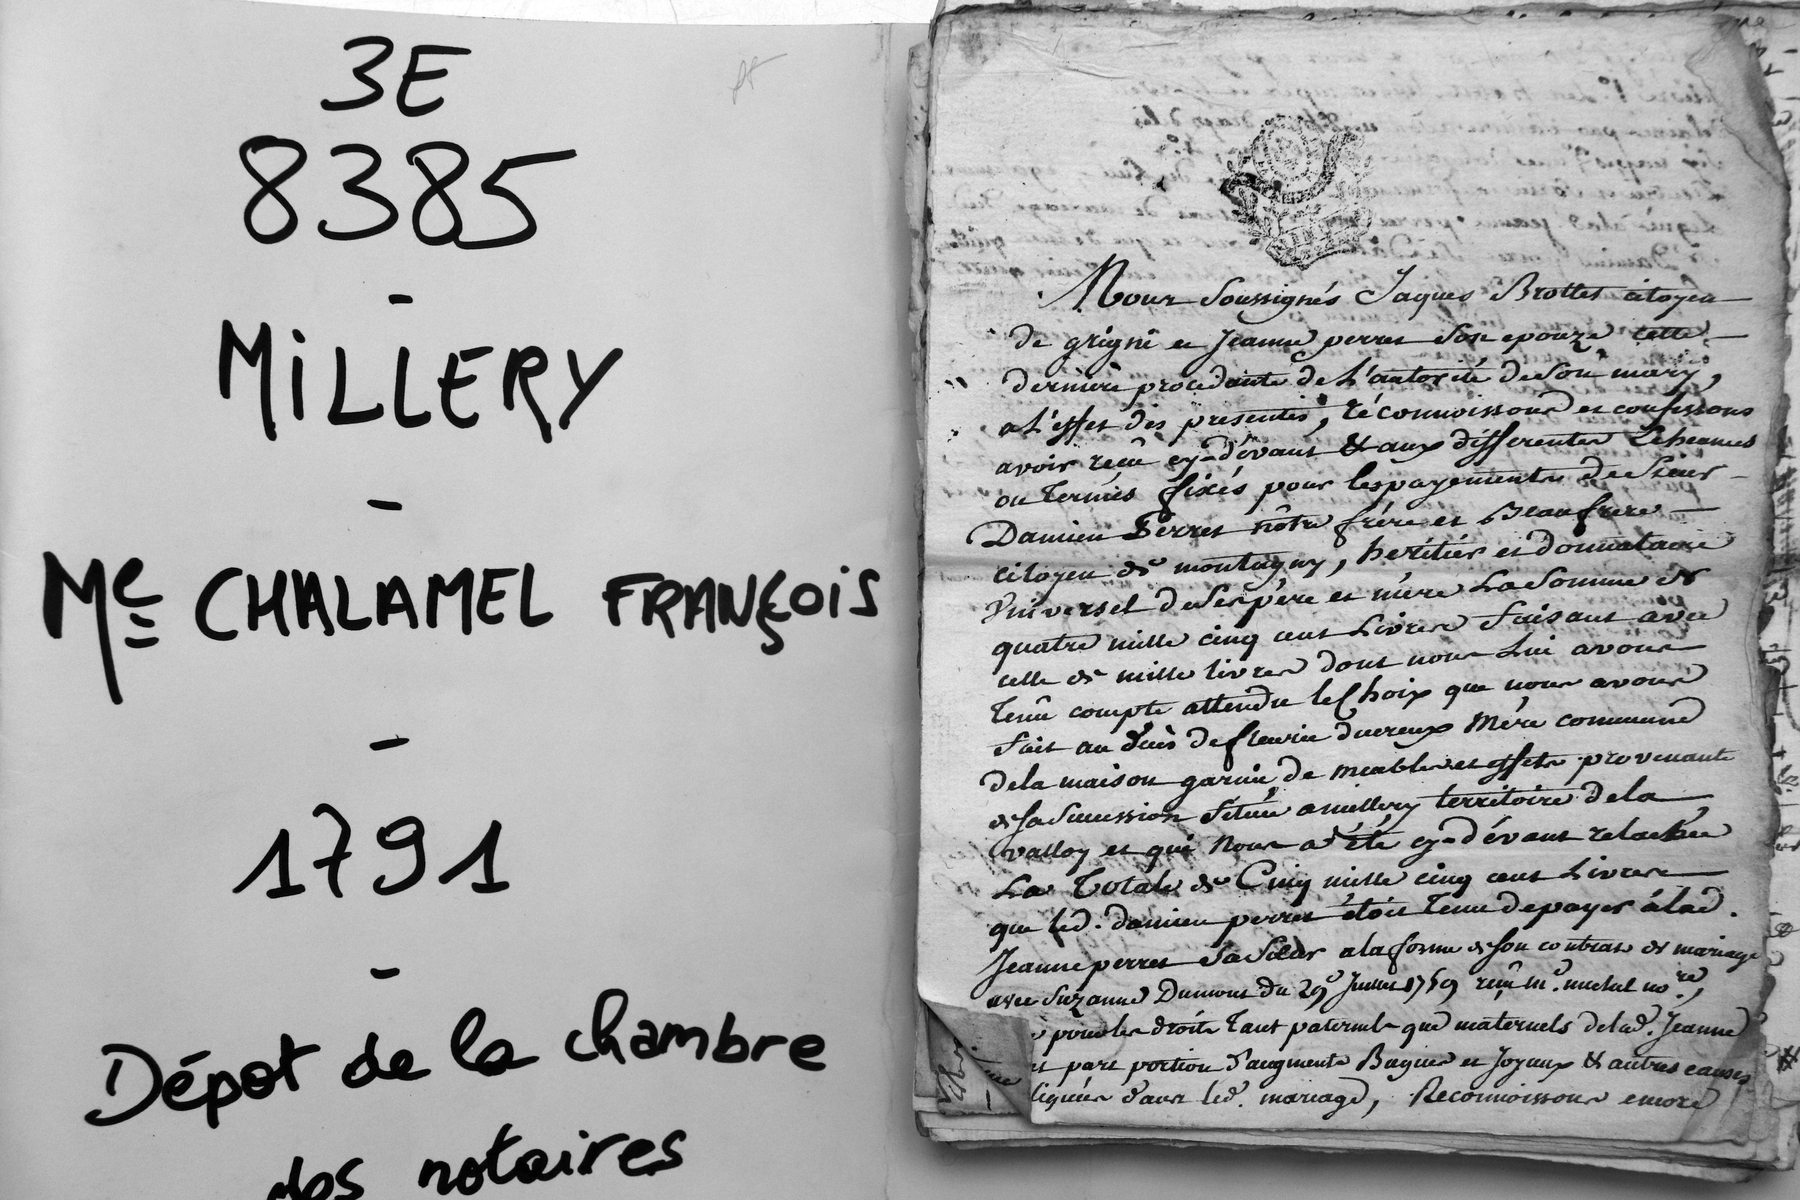 3E
8385
-
MiLLERY
-
Me CHALAMEL FRANÇOIS
-
1791
-
Dépot de la chambre
des notaires
Nous Soussignés Jaques Brottet citoyen
de grigni et Jeanne perret son epouze cette
derniere procedante de L'autorité de Son mary,
a L'effet des presentes, réconnoissons et confessons
avoir recu cy-dévant & aux differentes Echeances
ou Termes fixés pour les payements de Sieur
Damien Perret nôtre frére et Beaufrere
citoyen de montagny, heritier et donnataire
Universel de Ses pére et mére La Somme de
quatre mille cinq cent Livres faisant avec
celle de mille livres dont nous Lui avons
Tenu compte attendu le Choix que nous avons
fait au de fleurie ducreux Mére commune
de la maison garnie de meubles et effets provenante
de sa Succession Située a millery territoire de la
valloy et qui Nous a été cy-dévant relachée
La Totale de Cinq mille cinq cent Livres
que led. damien perret étoit Tenu de payer á lad.
Jeanne perret Sa Sœur a la forme de son contrat de mariage
avec Suzanne Dumont du 29e Juillet 1759 reçu Me. michel no.re,
pour les droits Tant paternels que maternels de lad. Jeanne
et part portion d'augment Bagues et Joyaux & autres causes
dans led. mariage, Reconnoissons encore